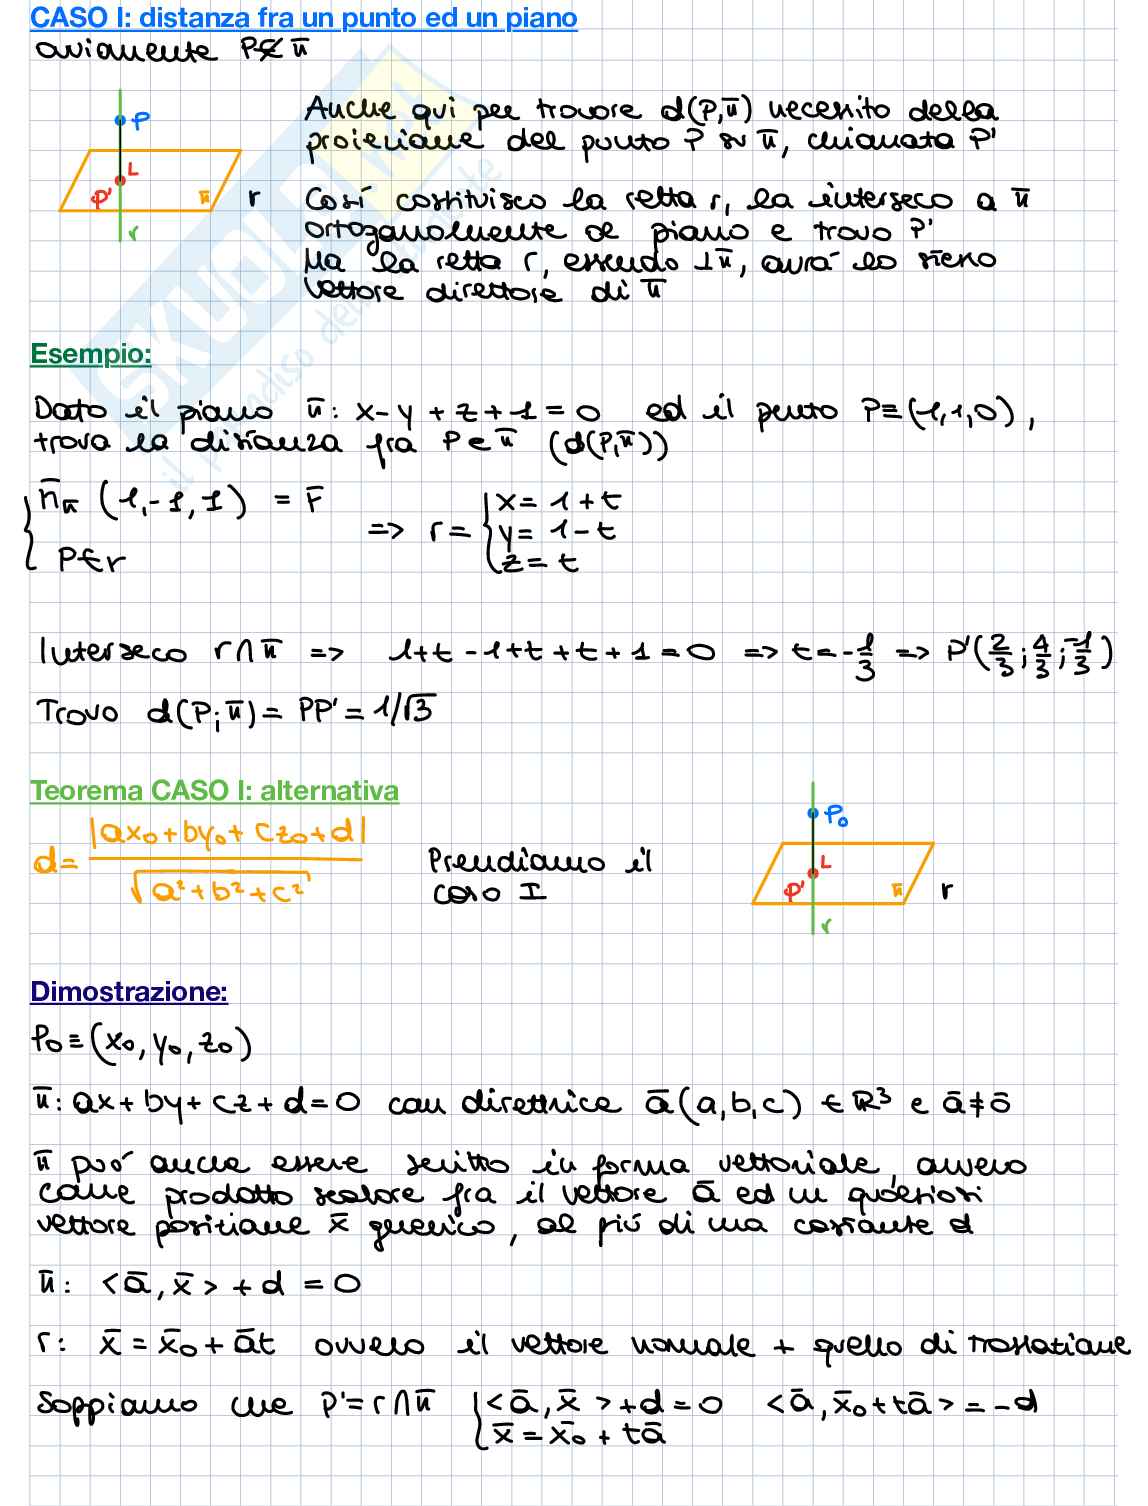 CASO I: distanza fra un punto ed un piano
ovviamente P∉π
P
L
P'
π
r
r
Anche qui per trovare d(P,π) necessito della
proiezione del punto P su π, chiamata P'
Così costituisco la retta r, la interseco a π
ortogonalmente al piano e trovo P'
Ma la retta r, essendo ⊥π, avrà lo stesso
vettore direttore di π
Esempio:
Dato il piano π: x-y+z+1=0 ed il punto P≡(1,1,0),
trova la distanza fra P e π (d(P,π))
{ n̄π (1,-1,1) = r̄
P∈r
=> r= { x= 1+t
y= 1-t
z= t
Interseco r∩π => 1+t-1+t+t+1=0 => t=-1/3 => P'(2/3; 4/3; -1/3)
Trovo d(P;π)= PP'= 1/√3
Teorema CASO I: alternativa
d= |ax₀+by₀+cz₀+d| / √(a²+b²+c²)
Prendiamo il
caso I
P₀
L
P'
π
r
r
Dimostrazione:
P₀≡(x₀,y₀,z₀)
π: ax+by+cz+d=0 con direttrice ā(a,b,c) ∈ ℝ³ e ā≠ō
π può anche essere scritto in forma vettoriale, ovvero
come prodotto scalare fra il vettore ā ed un qualsiasi
vettore posizione x̄ generico, al più di una costante d
π: <ā,x̄>+d=0
r: x̄=x̄₀+āt ovvero il vettore normale + quello di traslazione
Sappiamo che P'=r∩π { <ā,x̄>+d=0 <ā,x̄₀+tā>=-d
x̄=x̄₀+tā
SKUOLA
il paradiso dello